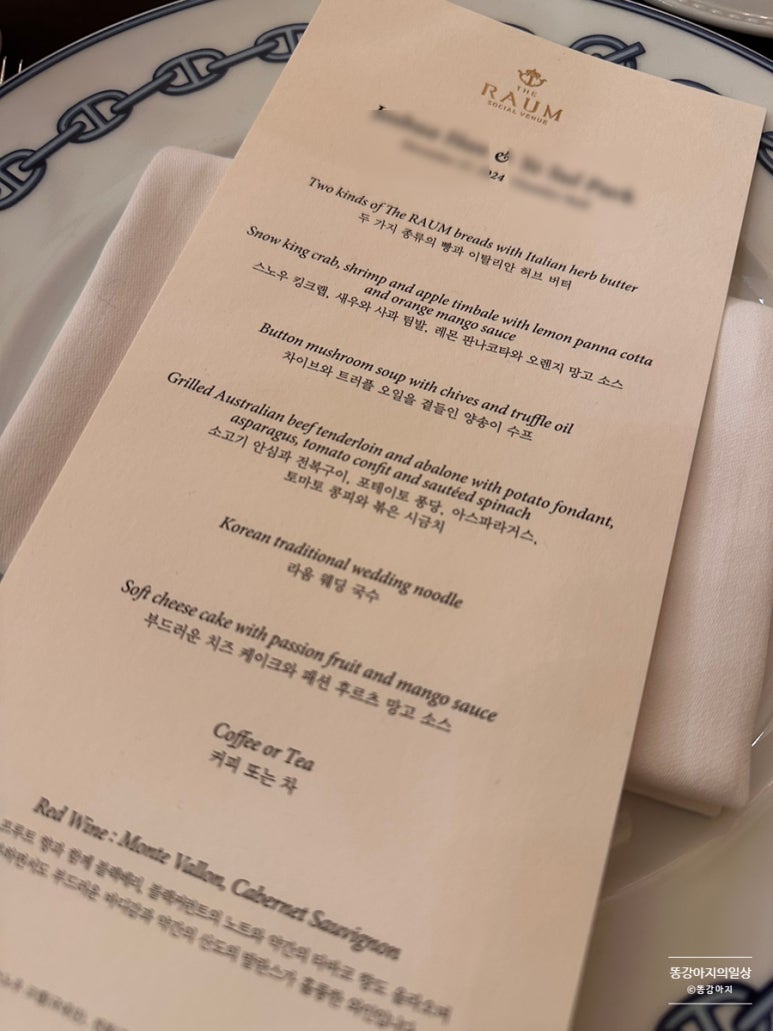 THE
RAUM
SOCIAL VENUE
&
Two kinds of The RAUM breads with Italian herb butter
두 가지 종류의 빵과 이탈리안 허브 버터
Snow king crab, shrimp and apple timbale with lemon panna cotta
and orange mango sauce
스노우 킹크랩, 새우와 사과 팀발, 레몬 판나코타와 오렌지 망고 소스
Button mushroom soup with chives and truffle oil
차이브와 트러플 오일을 곁들인 양송이 수프
Grilled Australian beef tenderloin and abalone with potato fondant,
asparagus, tomato confit and sautéed spinach
소고기 안심과 전복구이, 포테이토 퐁당, 아스파라거스,
토마토 콩피와 볶은 시금치
Korean traditional wedding noodle
라움 웨딩 국수
Soft cheese cake with passion fruit and mango sauce
부드러운 치즈 케이크와 패션 후르츠 망고 소스
Coffee or Tea
커피 또는 차
Red Wine : Monte Vallon, Cabernet Sauvignon
프루트 향과 함께 블랙베리, 블랙커런트의 노트와 약간의 타바코 향도 올라오며
부드러운 바디감과 약간의 산도의 밸런스가 훌륭한 와인입니다
똥강아지의일상
©똥강아지